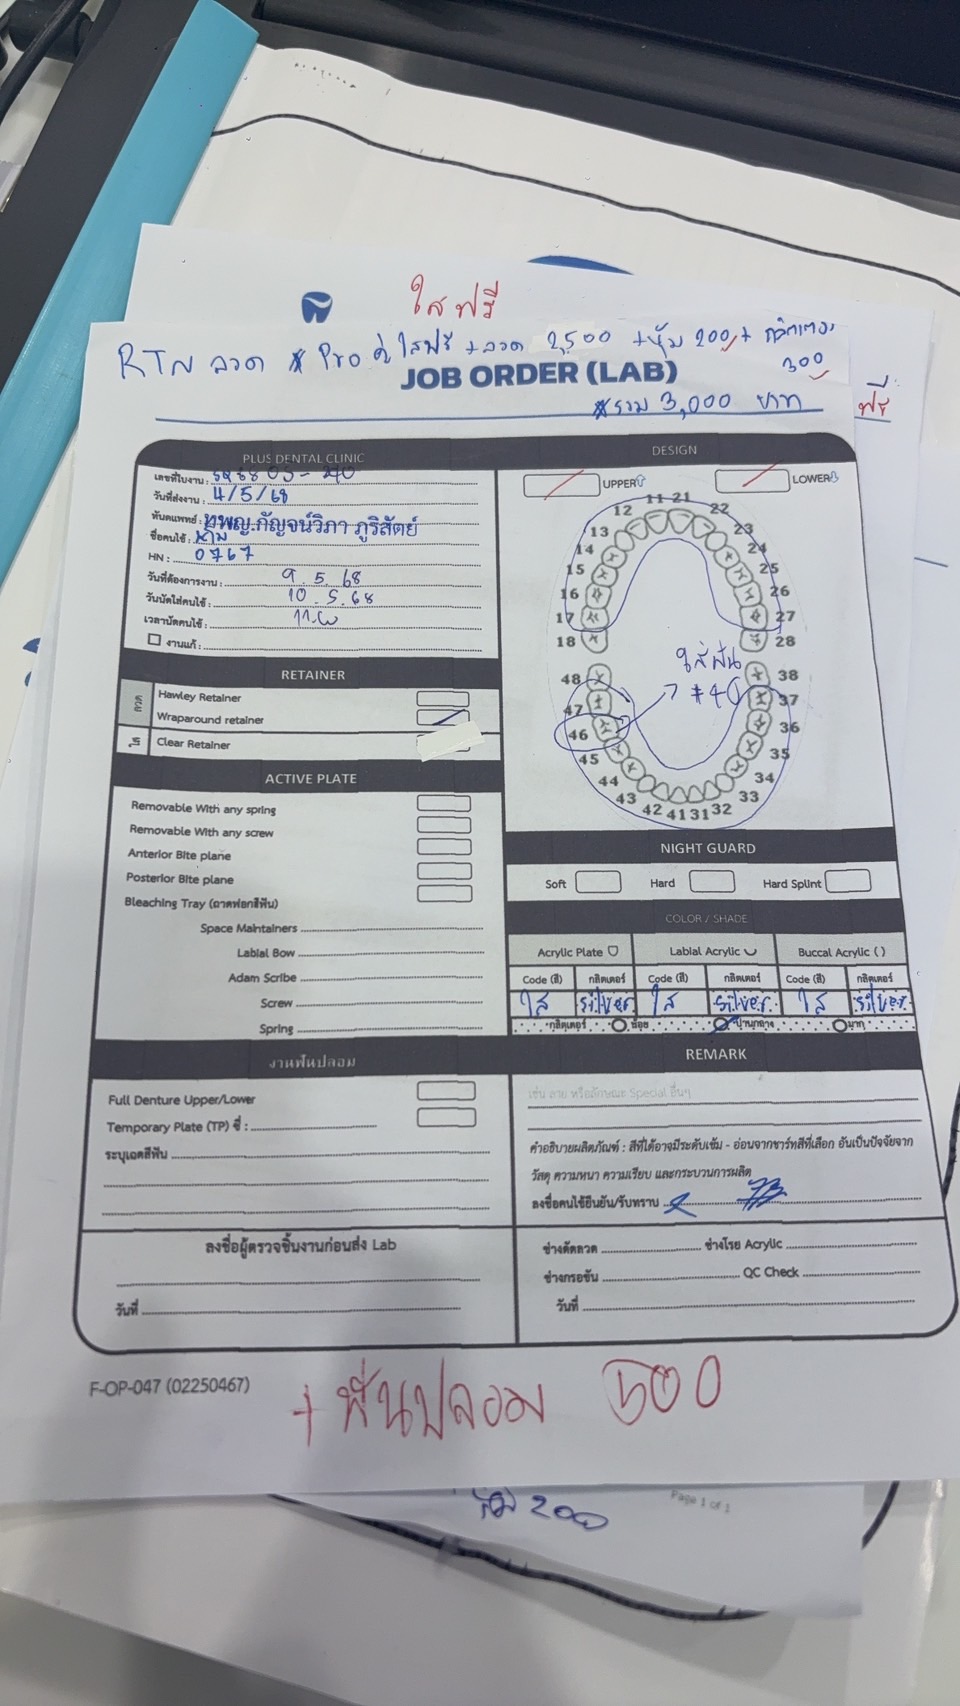 ใสฟรี
RTN ลวด Pro คู่ ใสฟรี + ลวด 2,500 + หุ้ม 200, + กลิตเตอร์
300
JOB ORDER (LAB)
รวม 3,000 บาท
ฟรี
PLUS DENTAL CLINIC
เลขที่ใบงาน :
วันที่ส่งงาน : 4/5/68
ทันตแพทย์ : ทพญ.กัญจน์วิภา ภูริสัตย์
ชื่อคนไข้ :
HN : 0767
วันที่ต้องการงาน : 9.5.68
วันนัดใส่คนไข้ : 10.5.68
เวลานัดคนไข้ :
งานแก้ :
RETAINER
Hawley Retainer
Wraparound retainer
Clear Retainer
ACTIVE PLATE
Removable With any spring
Removable With any screw
Anterior Bite plane
Posterior Bite plane
Bleaching Tray (ถาดฟอกสีฟัน)
Space Maintainers
Labial Bow
Adam Scribe
Screw
Spring
งานฟันปลอม
Full Denture Upper/Lower
Temporary Plate (TP) ซี่ :
ระบุเฉดสีฟัน
ลงชื่อผู้ตรวจชิ้นงานก่อนส่ง Lab
วันที่
DESIGN
UPPER LOWER
11 21
12 22
13 23
14 24
15 25
16 26
17 27
18 28
ใส่ฟัน
48 38
47 37
46 36
45 35
44 34
43 33
42 41 31 32
NIGHT GUARD
Soft Hard Hard Splint
COLOR / SHADE
Acrylic Plate Labial Acrylic Buccal Acrylic ( )
Code (สี) กลิตเตอร์ Code (สี) กลิตเตอร์ Code (สี) กลิตเตอร์
ใส silver ใส silver ใส silver
กลิตเตอร์ น้อย ปานกลาง มาก
REMARK
เช่น ลาย หรือลักษณะ Special อื่นๆ
คำอธิบายผลิตภัณฑ์ : สีที่ได้อาจมีระดับเข้ม - อ่อนจากชาร์ทสีที่เลือก อันเป็นปัจจัยจาก
วัสดุ ความหนา ความเรียบ และกระบวนการผลิต
ลงชื่อคนไข้ยืนยัน/รับทราบ
ช่างดัดลวด ช่างโรย Acrylic
ช่างกรอขัน QC Check
วันที่
F-OP-047 (02250467)
+ ฟันปลอม 500
Page 1 of 1
200